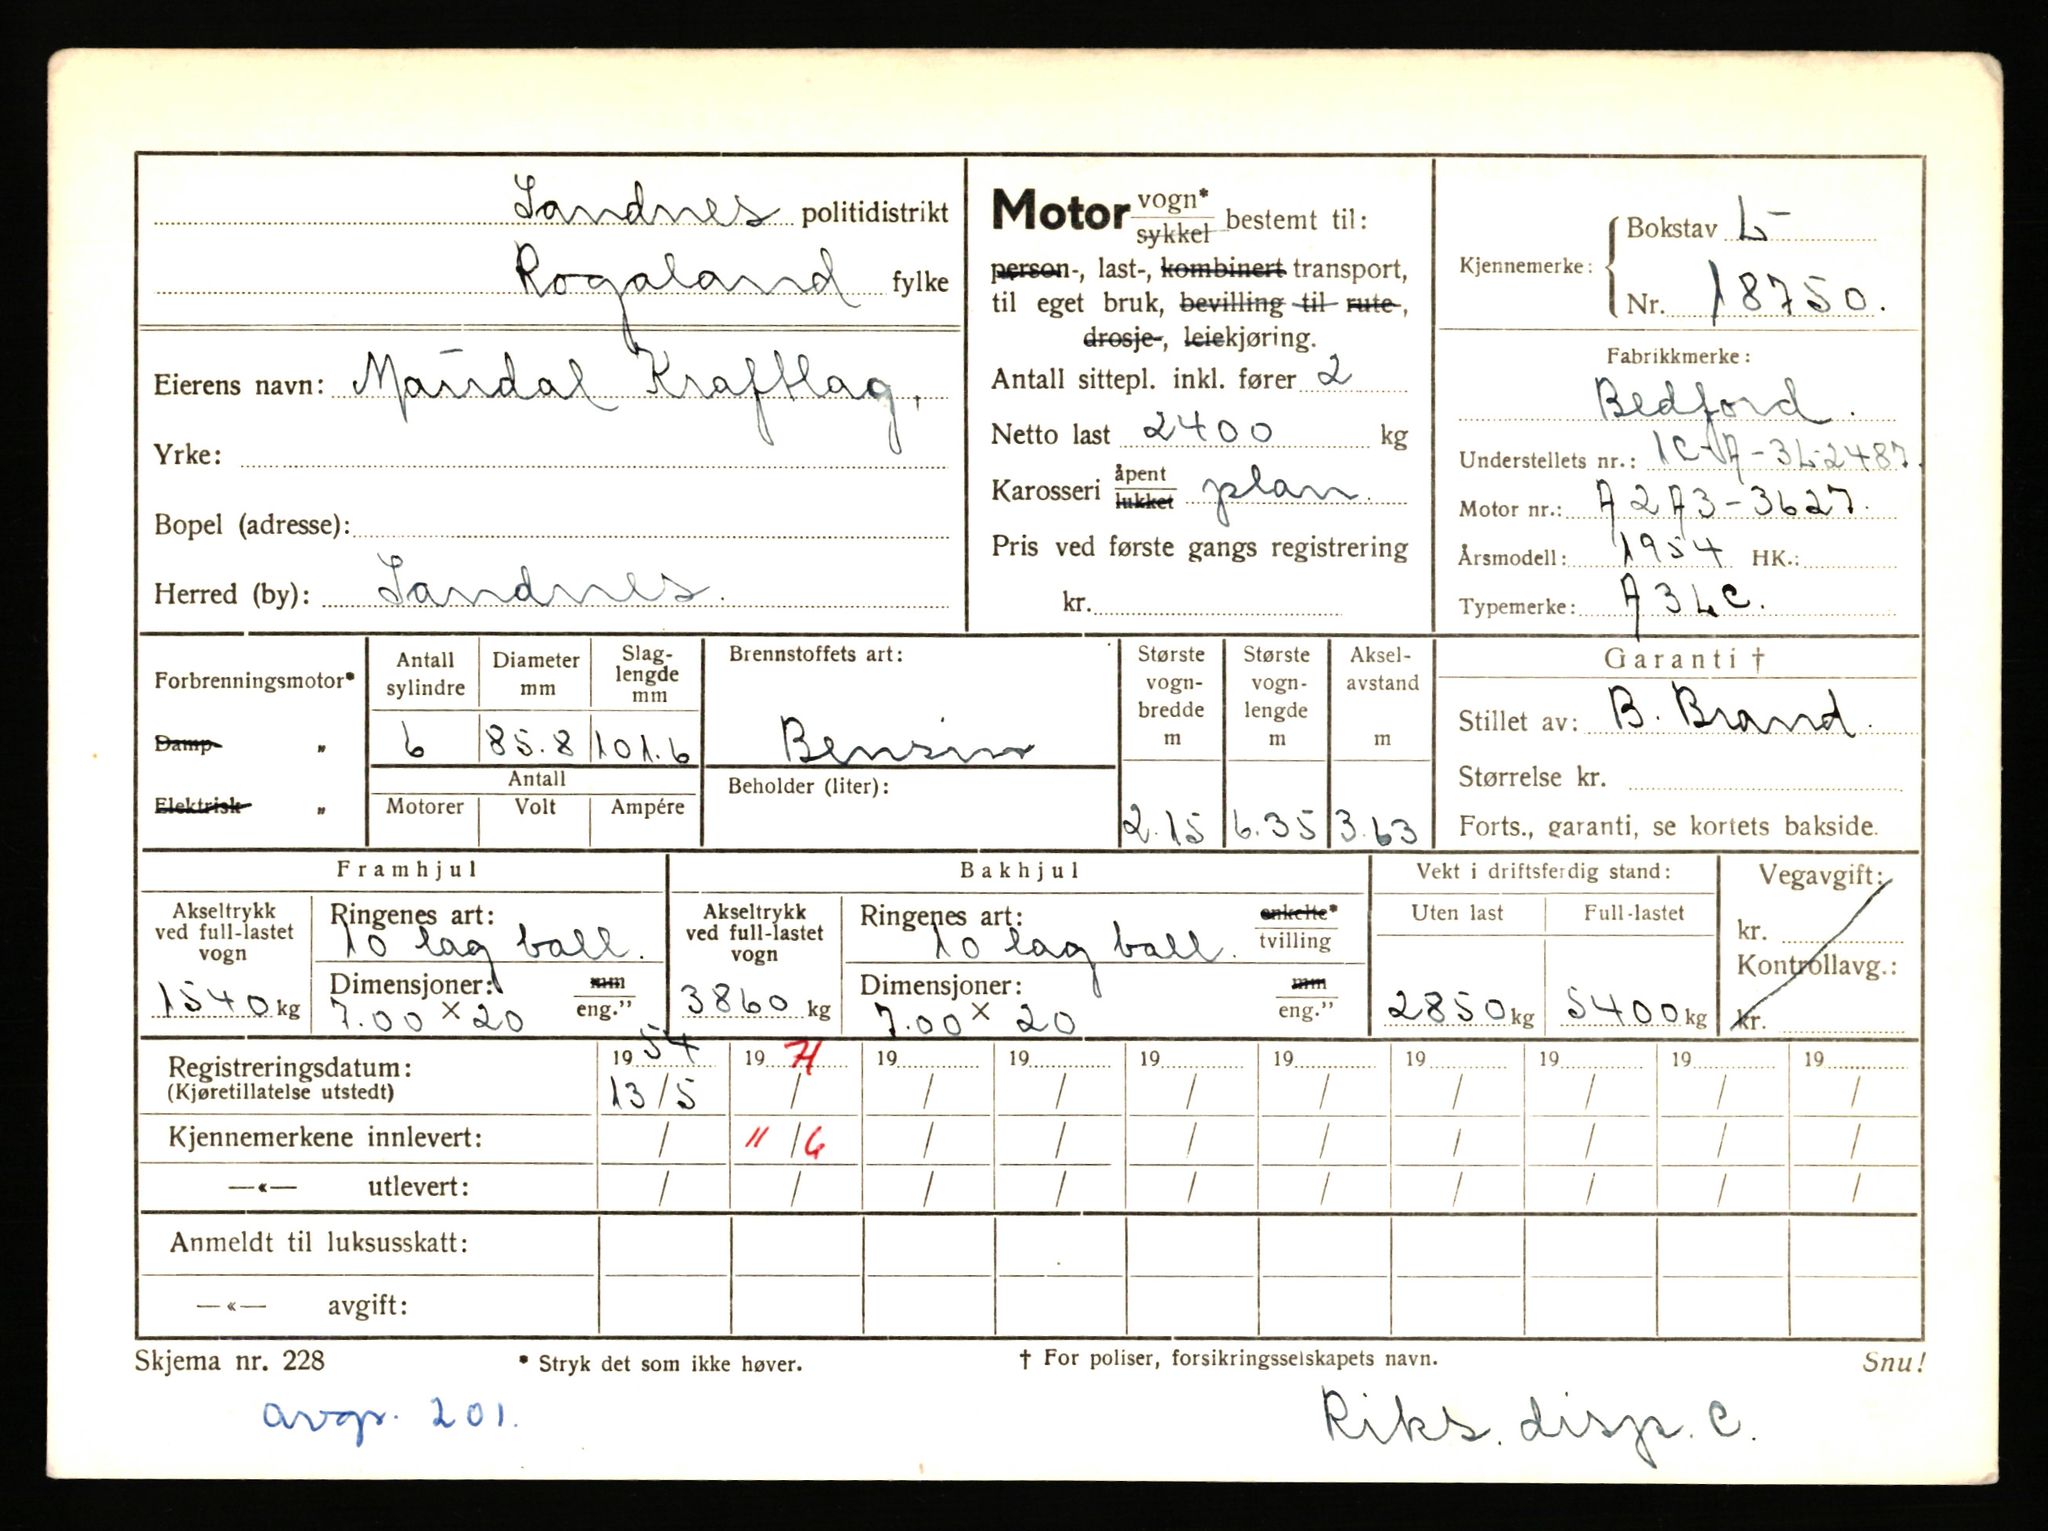 Sandnes politidistrikt
Rogaland fylke
Eierens navn: Maudal Kraftlag.
Yrke:
Bopel (adresse):
Herred (by): Sandnes.
Motor vogn* sykkel bestemt til:
person-, last-, kombinert transport,
til eget bruk, bevilling til rute-,
drosje-, leiekjøring.
Antall sittepl. inkl. fører 2
Netto last 2400 kg
Karosseri åpent lukket plan.
Pris ved første gangs registrering
kr.
Kjennemerke: Bokstav L-
Nr. 18750.
Fabrikkmerke:
Bedford.
Understellets nr.: 1C-A-3L2487.
Motor nr.: A2A3-3627.
Årsmodell: 1954 HK.:
Typemerke: A3LC.
Forbrenningsmotor*
Damp- „
Elektrisk „
Antall sylindre
6
Diameter mm
85.8
Slag-lengde mm
101.6
Antall
Motorer Volt Ampére
Brennstoffets art:
Bensin
Beholder (liter):
Største vogn-bredde m
2.15
Største vogn-lengde m
6.35
Aksel-avstand m
3.63
Garanti †
Stillet av: B. Brand.
Størrelse kr.
Forts., garanti, se kortets bakside.
Framhjul
Akseltrykk ved full-lastet vogn
1540 kg
Ringenes art:
10 lag ball.
Dimensjoner: mm eng."
7.00 x 20
Bakhjul
Akseltrykk ved full-lastet vogn
3860 kg
Ringenes art: enkelte* tvilling
10 lag ball.
Dimensjoner: mm eng."
7.00 x 20
Vekt i driftsferdig stand:
Uten last Full-lastet
2850 kg 5400 kg
Vegavgift:
kr.
Kontrollavg.:
kr.
Registreringsdatum: 19 54 19 71 19 19 19 19 19 19 19 19
(Kjøretillatelse utstedt) 13/5 / / / / / / / / /
Kjennemerkene innlevert: / 11/6 / / / / / / / /
—«— utlevert: / / / / / / / / / /
Anmeldt til luksusskatt:
—«— avgift:
Skjema nr. 228 * Stryk det som ikke høver. † For poliser, forsikringsselskapets navn. Snu!
avgr. 201. Riks. disp. C.